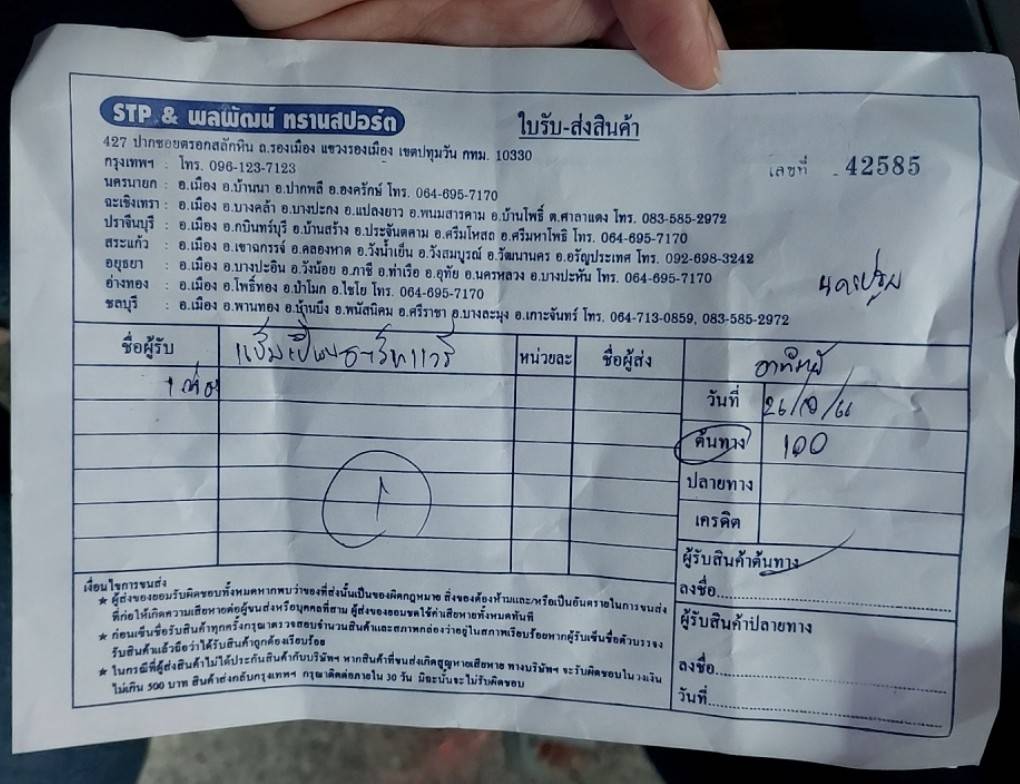 STP & พลพัฒน์ ทรานสปอร์ต
ใบรับ-ส่งสินค้า
427 ปากซอยตรอกสลักหิน ถ.รองเมือง แขวงรองเมือง เขตปทุมวัน กทม. 10330
เลขที่ 42585
กรุงเทพฯ : โทร. 096-123-7123
นครนายก : อ.เมือง อ.บ้านนา อ.ปากพลี อ.องครักษ์ โทร. 064-695-7170
ฉะเชิงเทรา : อ.เมือง อ.บางคล้า อ.บางปะกง อ.แปลงยาว อ.พนมสารคาม อ.บ้านโพธิ์ ต.ศาลาแดง โทร. 083-585-2972
ปราจีนบุรี : อ.เมือง อ.กบินทร์บุรี อ.บ้านสร้าง อ.ประจันตคาม อ.ศรีมโหสถ อ.ศรีมหาโพธิ โทร. 064-695-7170
สระแก้ว : อ.เมือง อ.เขาฉกรรจ์ อ.คลองหาด อ.วังน้ำเย็น อ.วังสมบูรณ์ อ.วัฒนานคร อ.อรัญประเทศ โทร. 092-698-3242
อยุธยา : อ.เมือง อ.บางปะอิน อ.วังน้อย อ.ภาชี อ.ท่าเรือ อ.อุทัย อ.นครหลวง อ.บางปะหัน โทร. 064-695-7170
อ่างทอง : อ.เมือง อ.โพธิ์ทอง อ.ป่าโมก อ.ไชโย โทร. 064-695-7170
ชลบุรี : อ.เมือง อ.พานทอง อ.บ้านบึง อ.พนัสนิคม อ.ศรีราชา อ.บางละมุง อ.เกาะจันทร์ โทร. 064-713-0859, 083-585-2972
ชื่อผู้รับ หน่วยละ ชื่อผู้ส่ง
วันที่ 26/10/66
ต้นทาง 100
ปลายทาง
1
เครดิต
ผู้รับสินค้าต้นทาง
ลงชื่อ
ผู้รับสินค้าปลายทาง
ลงชื่อ
วันที่
เงื่อนไขการขนส่ง
★ ผู้ส่งของยอมรับผิดชอบทั้งหมดหากพบว่าของที่ส่งนั้นเป็นของผิดกฎหมาย สิ่งของต้องห้ามและ/หรือเป็นอันตรายในการขนส่ง
ที่ก่อให้เกิดความเสียหายต่อผู้ขนส่งหรือบุคคลที่สาม ผู้ส่งของยอมชดใช้ค่าเสียหายทั้งหมดทันที
★ ก่อนเซ็นชื่อรับสินค้าทุกครั้งกรุณาตรวจสอบจำนวนสินค้าและสภาพกล่องว่าอยู่ในสภาพเรียบร้อยหากผู้รับเซ็นชื่อตัวบรรจง
รับสินค้าแล้วถือว่าได้รับสินค้าถูกต้องเรียบร้อย
★ ในกรณีที่ผู้ส่งสินค้าไม่ได้ประกันสินค้ากับบริษัทฯ หากสินค้าที่ขนส่งเกิดสูญหายเสียหาย ทางบริษัทฯ จะรับผิดชอบในวงเงิน
ไม่เกิน 500 บาท สินค้าส่งกลับกรุงเทพฯ กรุณาติดต่อภายใน 30 วัน มิฉะนั้นจะไม่รับผิดชอบ